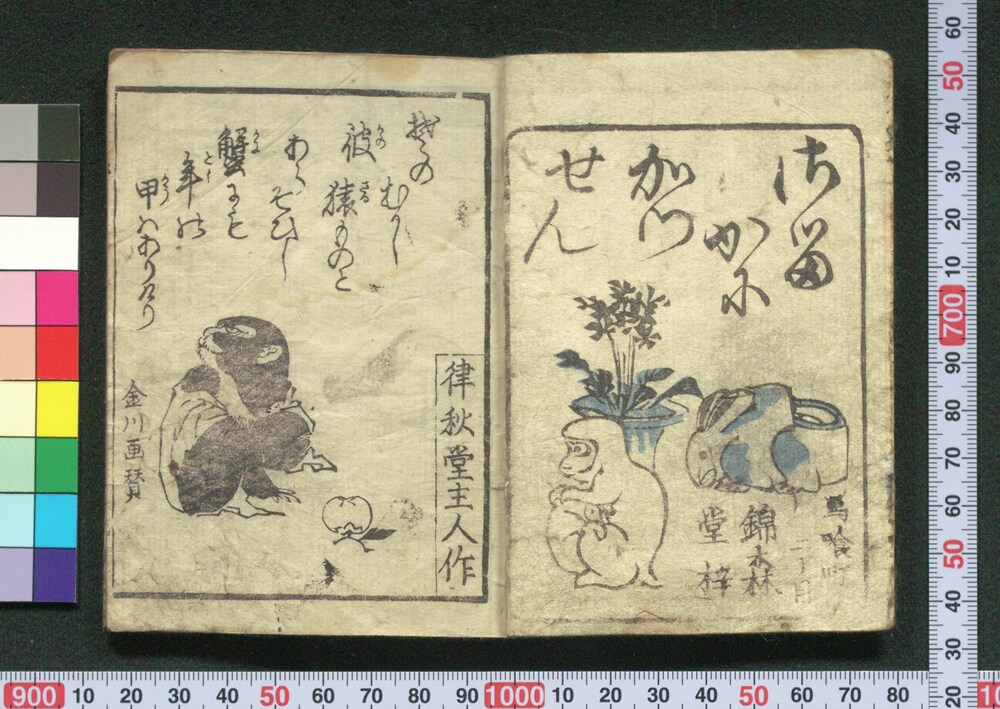 さる
かに
かつ
せん
馬喰町
二丁目
錦森
堂梓
律秋堂主人作
むかし
彼猿ものと
かの
さる
あらそひし
蟹にも
かに
年の
とし
甲はありけり
かう
金川画賛
900 10 20 30 40 50 60 70 80 90 1000 10 20 30 40 50 60 70 80
60 50 40 30 20 10 700 90 80 70 60 50 40 30 20